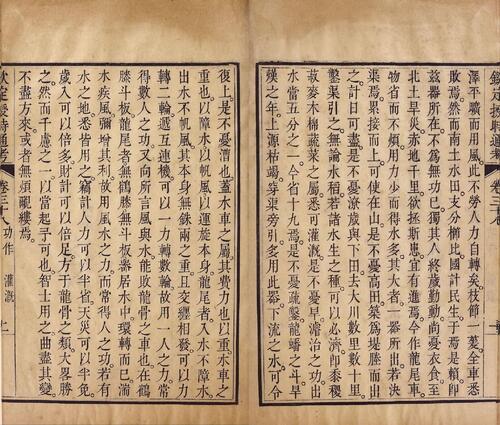 欽定授時通考
澤平曠而用風此不勞人力自轉矣枝節一蔞全車悉
敗焉然而南土水田支分櫛比國計民生于焉是賴即
茲器所在不為無功已獨其人終歲勤動尚憂衣食至
北土旱災赤地千里欲拯斯患宜有進焉今作龍尾車
物省而不煩用力少而得水多其大者一器所出若決
渠焉累接而上可使在山是不憂高田築為堤塍而出
之計日可盡是不憂潦歲與下田去大川數里數十里
鑿渠引之無論水稻若諸水生之種可以必濟即黍稷
菽麥木棉蔬菜之屬悉可灌溉是不憂旱濬治之功出
水當五分之一今省十九焉是不憂疏鑿龍蟠之斗旱
熯之年上源枯竭穿渠旁引多用此器下流之水可令
復上是不憂漕也蓋水車之屬其費力也以重水車之
重也以障水以帆風以運旋本身龍尾者入水不障水
出水不帆風其本身無銖兩之重且交纏相發可以力
轉二輪遞互連機可以一力轉數輪故用一人之力常
得數人之功又向所言風與水能敗龍骨之車也在鶴
膝斗板龍尾者無鶴膝無斗板器居水中環轉而已湍
水疾風彌增其利故用風水之力而常得人之功若有
水之地悉皆用之竊計人力可以半省天災可以半免
歲入可以倍多財計可以倍足方于龍骨之類大畧勝
之然而千慮之一以當起予可也智士用之曲盡其變
不盡方來或者無煩覼縷焉
欽定授時通考 卷三十八 功作 灌溉 十一